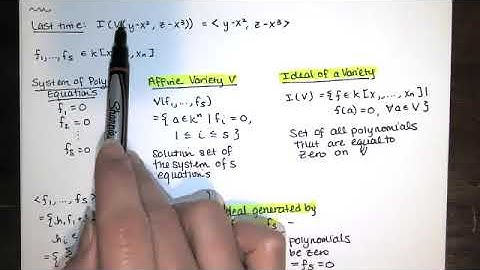 Last time: I(V(y-x², z-x³)) = <y-x², z-x³>
f₁,...,fₛ ∈ k[x, xₙ]
System of Poly
Equations
f₁ = 0
f₂ = 0
⋮
fₛ = 0
Affine Variety V
V(f₁,...,fₛ)
= {a ∈ kⁿ | fᵢ = 0,
1 ≤ i ≤ s}
Solution set of
the system of s
equations
Ideal of a Variety
I(V) = {f ∈ k[x₁,...,xₙ] |
f(a) = 0, ∀a ∈ V}
Set of all polynomials
that are equal to
zero on V
<f₁,...,fₛ
= {h₁f₁
hᵢ
deal generated by
fₛ -
polynomials
be zero
= fₛ = 0
Sharpie